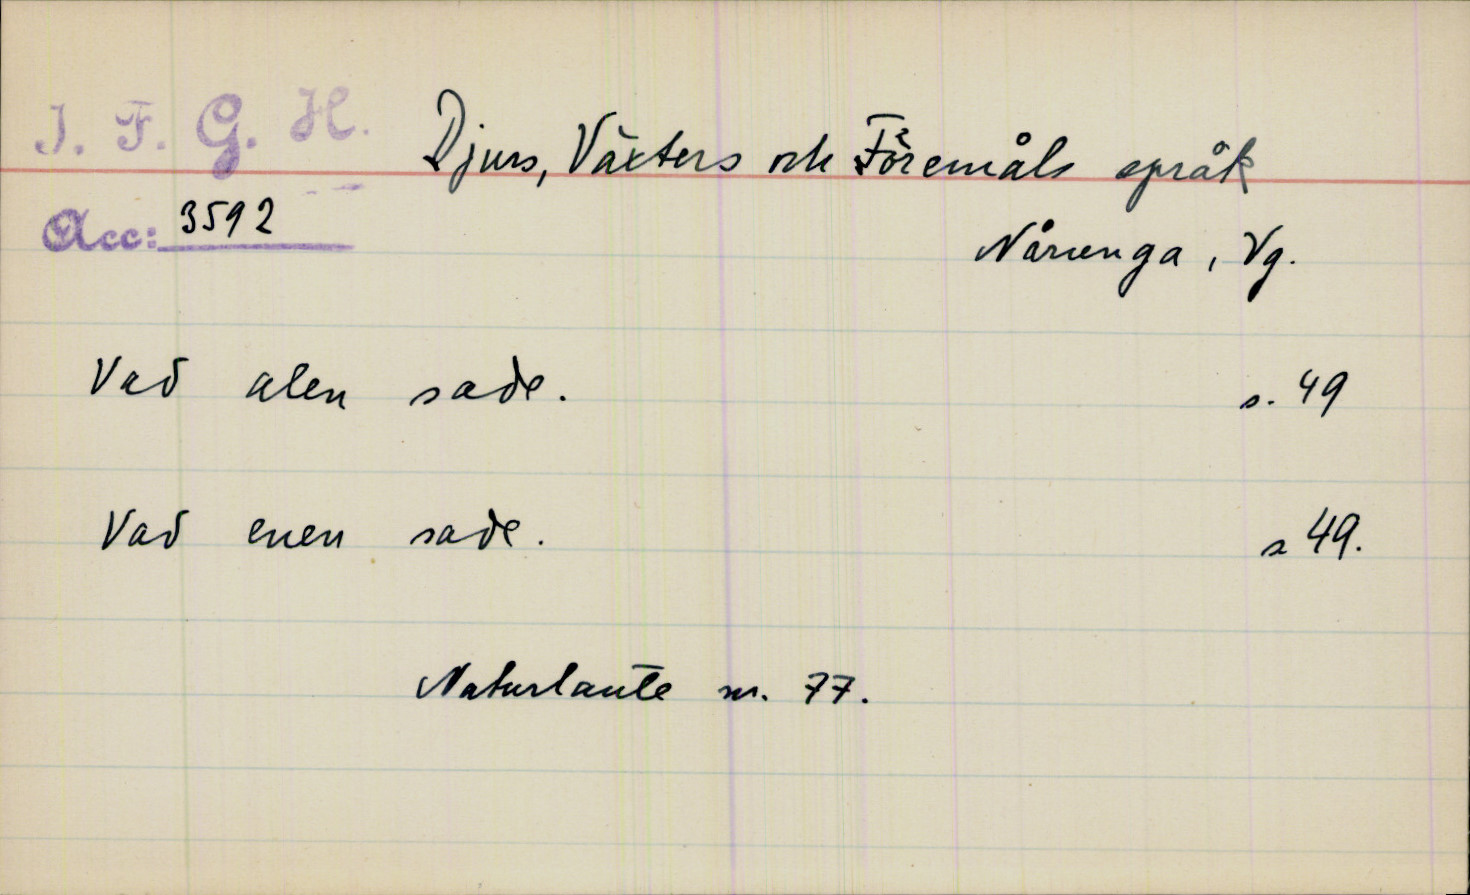 I. F. G. H. Djurs, Växters och Föremåls språk
Acc: 3592 Nårunga, Vg.
Vad alen sade. s. 49
Vad enen sade. s 49.
Naturlaute nr. 77.